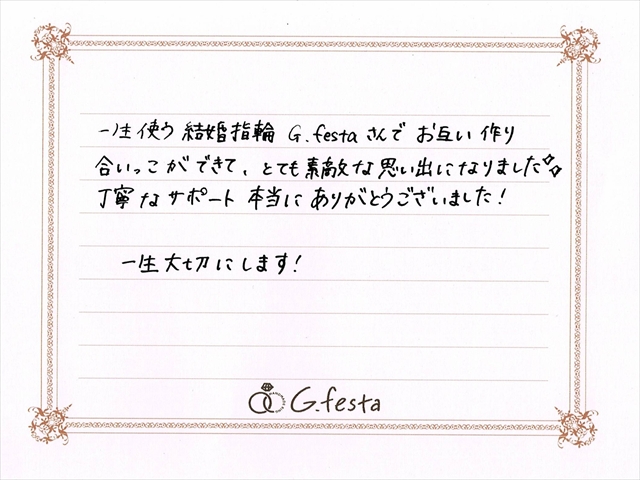 一生使う結婚指輪 G.festaさんで お互い作り
合いっこができて、とても素敵な思い出になりました
丁寧なサポート 本当に ありがとうございました！
一生大切にします！
G.festa